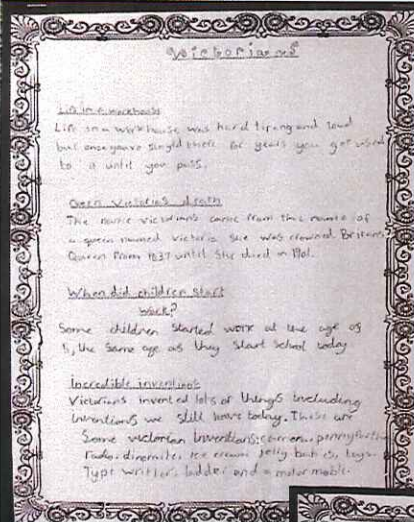 Victorians
Life in a workhouse
Life in a workhouse was hard tiring and loud
but once you've stayed there for years you get used
to it until you pass.
Queen Victorias death
The name victorians came from the name of
a queen named victoria she was crowned Britains
Queen from 1837 until she died in 1901.
When did children start
work?
Some children started work at the age of
5, the same age as they start school today
Incredible inventions
Victorians invented lots of things including
inventions we still have today. These are
Some victorian inventions: camera, penny farthing
radio, dinamite, ice cream, jelly babies, toys.
Type writter, ladder and a motor